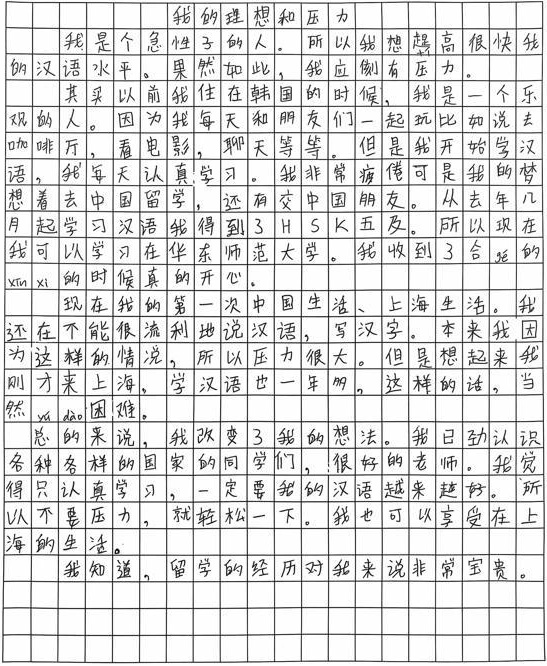 我的理想和压力
我是个急性子的人。所以我想提高很快我
的汉语水平。果然如此，我应刻有压力。
其实以前我住在韩国的时候，我是一个乐
观的人。因为我每天和朋友们一起玩比如说去
咖啡厅，看电影，聊天等等。但是我开始学汉
语，我每天认真学习。我非常疲倦可是我的梦
想着去中国留学，还有交中国朋友。从去年几
月起学习汉语我得到了HSK五及。所以现在
我可以学习在华东师范大学。我收到了合gé的
xìn xi的时候真的开心。
现在我的第一次中国生活、上海生活。我
还在不能很流利地说汉语，写汉字。本来我因
为这样的情况，所以压力很大。但是想起来我
刚才来上海，学汉语也一年多，这样的话，当
然yù dào困难。
总的来说，我改变了我的想法。我已劲认识
各种各样的国家的同学们，很好的老师。我觉
得只认真学习，一定要我的汉语越来越好。所
以不要压力，就轻松一下。我也可以享受在上
海的生活。
我知道，留学的经历对我来说非常宝贵。